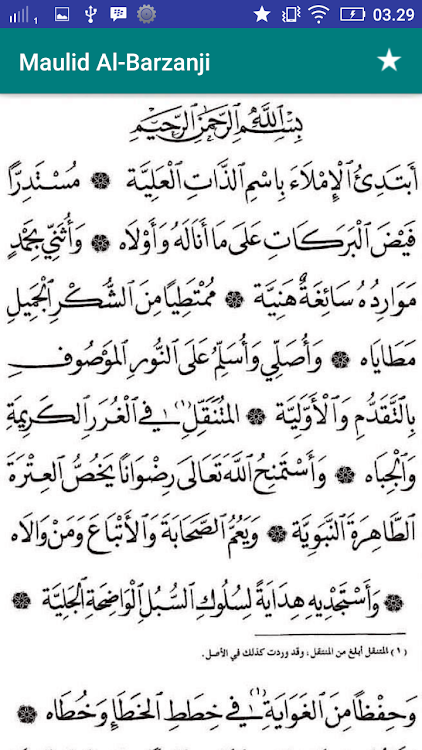 1 03.29
Maulid Al-Barzanji
بِسْمِ اللَّهِ الرَّحْمَنِ الرَّحِيمِ
أَبْتَدِئُ الْإِمْلَاءَ بِاسْمِ الذَّاتِ الْعَلِيَّةِ ۞ مُسْتَدِرًّا
فَيْضَ الْبَرَكَاتِ عَلَى مَا أَنَالَهُ وَأَوْلَاهُ ۞ وَأُثَنِّي بِحَمْدٍ
مَوَارِدُهُ سَائِغَةٌ هَنِيَّةٌ ۞ مُمْتَطِيًا مِنَ الشُّكْرِ الْجَمِيلِ
مَطَايَاهُ ۞ وَأُصَلِّي وَأُسَلِّمُ عَلَى النُّورِ الْمَوْصُوفِ
بِالتَّقَدُّمِ وَالْأَوَّلِيَّةِ ۞ الْمُتَنَقِّلِ (١) فِي الْغُرَرِ الْكَرِيمَةِ
وَالْجِبَاهِ ۞ وَأَسْتَمْنِحُ اللَّهَ تَعَالَى رِضْوَانًا يَخُصُّ الْعِتْرَةَ
الطَّاهِرَةَ النَّبَوِيَّةَ ۞ وَيَعُمُّ الصَّحَابَةَ وَالْأَتْبَاعَ وَمَنْ وَالَاهُ
۞ وَأَسْتَجْدِيهِ هِدَايَةً لِسُلُوكِ السُّبُلِ الْوَاضِحَةِ الْجَلِيَّةِ ۞
(١) المتنقل أبلغ من المنتقل، وقد وردت كذلك في الأصل.
وَحِفْظًا مِنَ الْغَوَايَةِ (١) فِي خِطَطِ الْخَطَإِ وَخُطَاهُ ۞